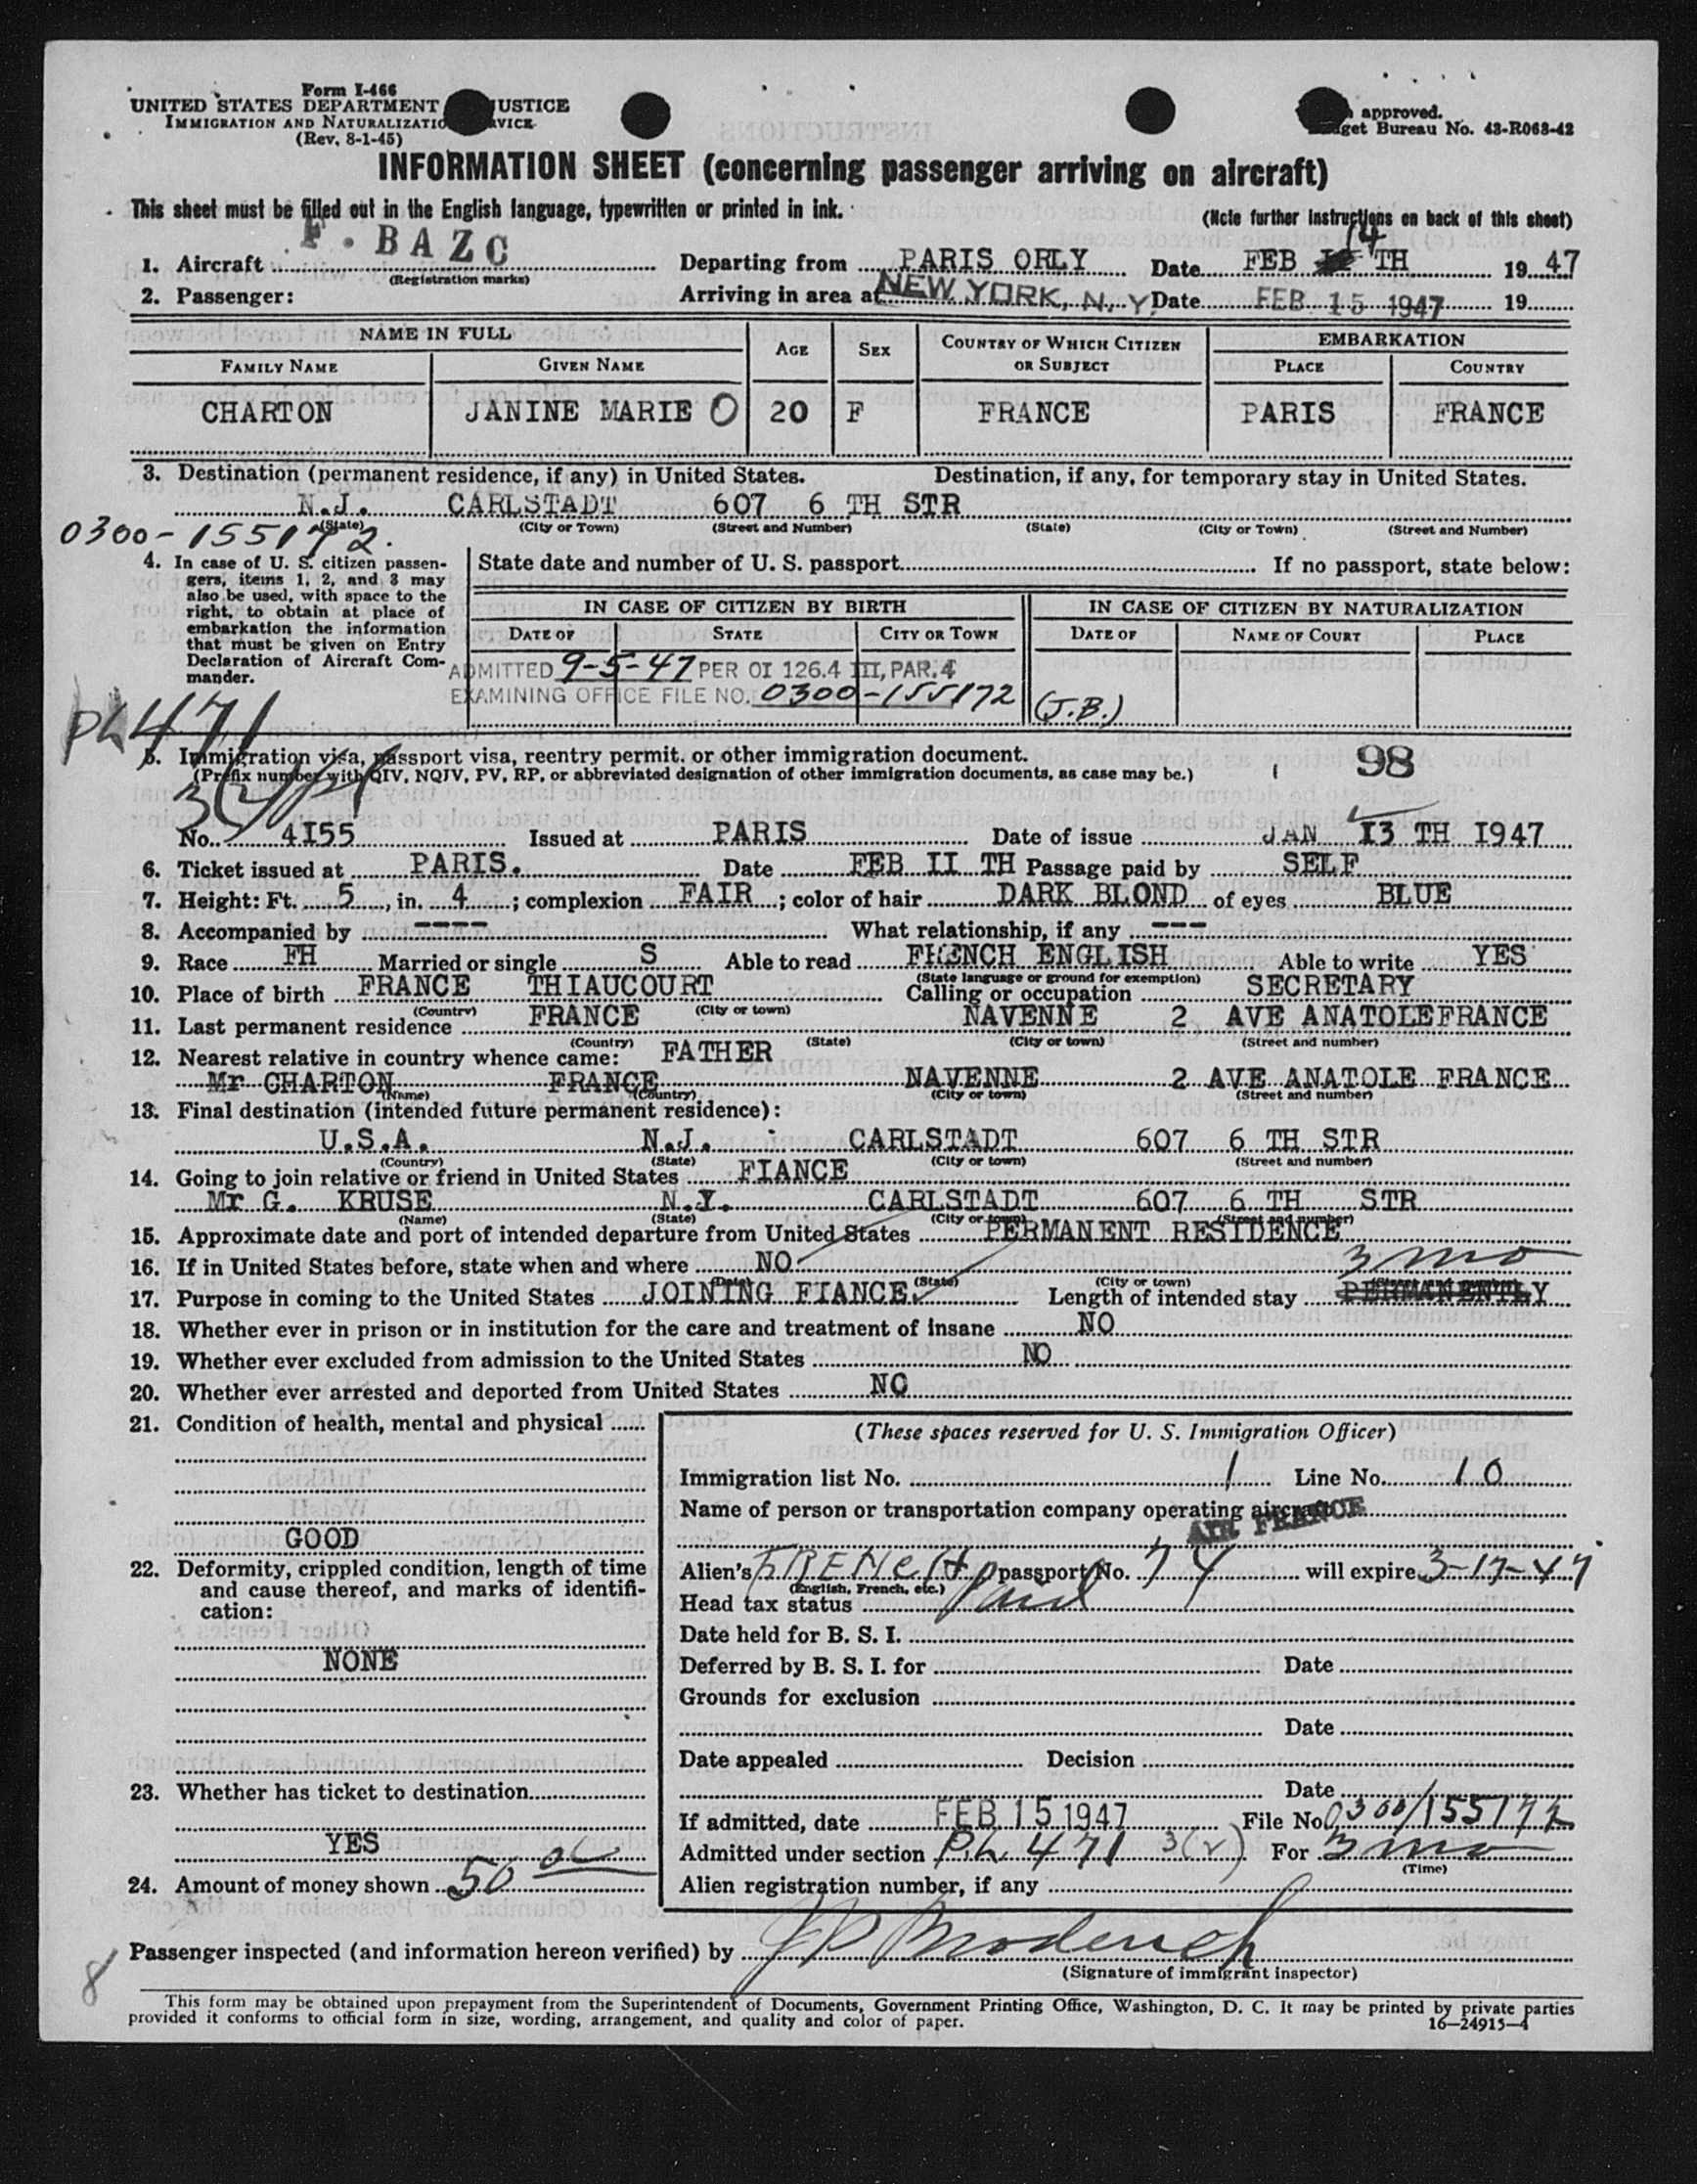 Form I-466
UNITED STATES DEPARTMENT JUSTICE
IMMIGRATION AND NATURALIZATIO RVICE
(Rev. 8-1-45)
approved.
get Bureau No. 43-R063-42
INFORMATION SHEET (concerning passenger arriving on aircraft)
This sheet must be filled out in the English language, typewritten or printed in ink.
(Note further instructions on back of this sheet)
1. Aircraft F. BAZC Departing from PARIS ORLY Date FEB 14 TH 1947
(Registration marks)
2. Passenger: Arriving in area at NEW YORK, N. Y. Date FEB 15 1947 19
NAME IN FULL AGE SEX COUNTRY OF WHICH CITIZEN OR SUBJECT EMBARKATION
FAMILY NAME GIVEN NAME PLACE COUNTRY
CHARTON JANINE MARIE O 20 F FRANCE PARIS FRANCE
3. Destination (permanent residence, if any) in United States. Destination, if any, for temporary stay in United States.
N.J. CARLSTADT 607 6 TH STR
(State) (City or Town) (Street and Number) (State) (City or Town) (Street and Number)
0300-155172.
4. In case of U. S. citizen passengers, items 1, 2, and 3 may also be used, with space to the right, to obtain at place of embarkation the information that must be given on Entry Declaration of Aircraft Commander.
State date and number of U. S. passport If no passport, state below:
IN CASE OF CITIZEN BY BIRTH IN CASE OF CITIZEN BY NATURALIZATION
DATE OF STATE CITY OR TOWN DATE OF NAME OF COURT PLACE
ADMITTED 9-5-47 PER OI 126.4 III, PAR. 4
EXAMINING OFFICE FILE NO. 0300-155172 (J.B.)
PL 471
5. Immigration visa, passport visa, reentry permit, or other immigration document.
(Prefix number with QIV, NQIV, PV, RP, or abbreviated designation of other immigration documents, as case may be.)
98
No. 4I55 Issued at PARIS Date of issue JAN I3 TH I947
6. Ticket issued at PARIS. Date FEB II TH Passage paid by SELF
7. Height: Ft. 5, in. 4; complexion FAIR; color of hair DARK BLOND of eyes BLUE
8. Accompanied by ---- What relationship, if any ---
9. Race FH Married or single S Able to read FRENCH ENGLISH Able to write YES
(State language or ground for exemption)
10. Place of birth FRANCE THIAUCOURT Calling or occupation SECRETARY
(Country) (City or town)
11. Last permanent residence FRANCE NAVENNE 2 AVE ANATOLE FRANCE
(Country) (State) (City or town) (Street and number)
12. Nearest relative in country whence came: FATHER
Mr CHARTON FRANCE NAVENNE 2 AVE ANATOLE FRANCE
(Name) (Country) (City or town) (Street and number)
13. Final destination (intended future permanent residence):
U.S.A. N.J. CARLSTADT 607 6 TH STR
(Country) (State) (City or town) (Street and number)
14. Going to join relative or friend in United States FIANCE
Mr G. KRUSE N.Y. CARLSTADT 607 6 TH STR
(Name) (State) (City or town) (Street and number)
15. Approximate date and port of intended departure from United States PERMANENT RESIDENCE
16. If in United States before, state when and where NO 3 mo
(Date) (State) (City or town) (Street and number)
17. Purpose in coming to the United States JOINING FIANCE Length of intended stay PERMANENTLY
18. Whether ever in prison or in institution for the care and treatment of insane NO
19. Whether ever excluded from admission to the United States NO
20. Whether ever arrested and deported from United States NO
21. Condition of health, mental and physical
GOOD
22. Deformity, crippled condition, length of time and cause thereof, and marks of identification:
NONE
23. Whether has ticket to destination
YES
24. Amount of money shown 50 00
(These spaces reserved for U. S. Immigration Officer)
Immigration list No. 1 Line No. 10
Name of person or transportation company operating aircraft
AIR FRANCE
Alien's FRENCH passport No. 74 will expire 3-17-47
(English, French, etc.)
Head tax status Paid
Date held for B. S. I.
Deferred by B. S. I. for Date
Grounds for exclusion
Date
Date appealed Decision
Date
If admitted, date FEB 15 1947 File No 0300/155172
Admitted under section P.L. 471 3(2) For 3 mo
(Time)
Alien registration number, if any
8
Passenger inspected (and information hereon verified) by
(Signature of immigrant inspector)
This form may be obtained upon prepayment from the Superintendent of Documents, Government Printing Office, Washington, D. C. It may be printed by private parties
provided it conforms to official form in size, wording, arrangement, and quality and color of paper. 16—24915-4